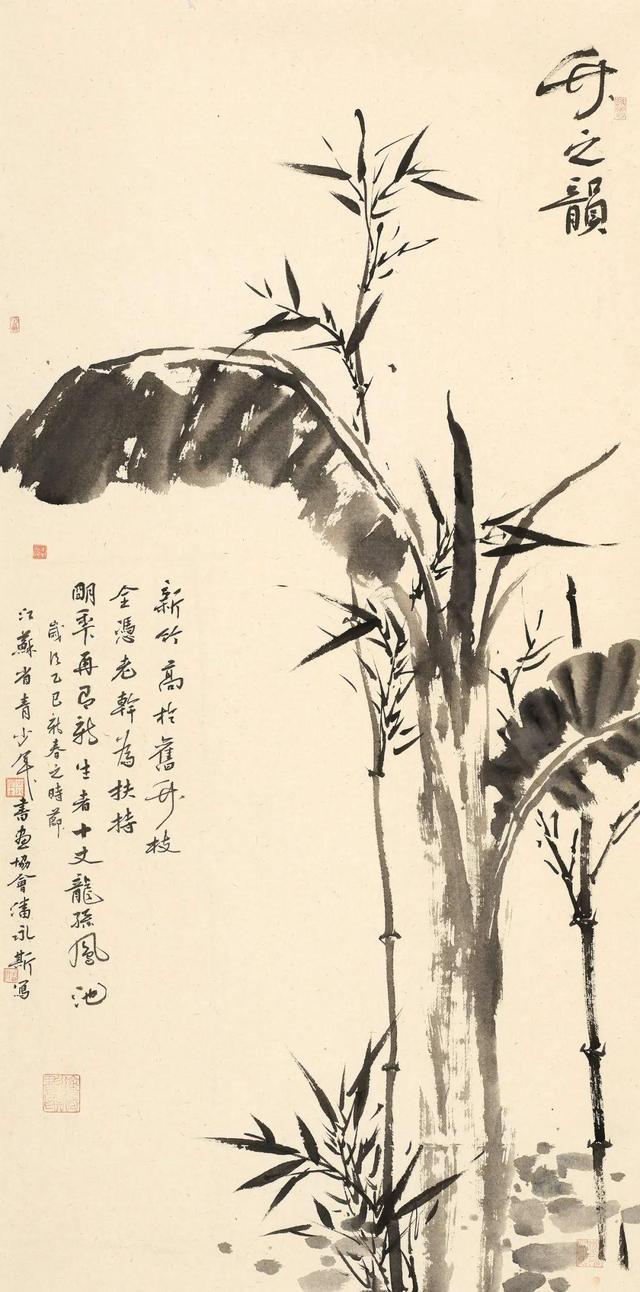 竹之韻
新竹高於舊竹枝
全憑老幹為扶持
明年再有新生者十丈龍孫鳳池
歲次乙巳新春之時節
江蘇省青少年書畫協會潘永斯寫